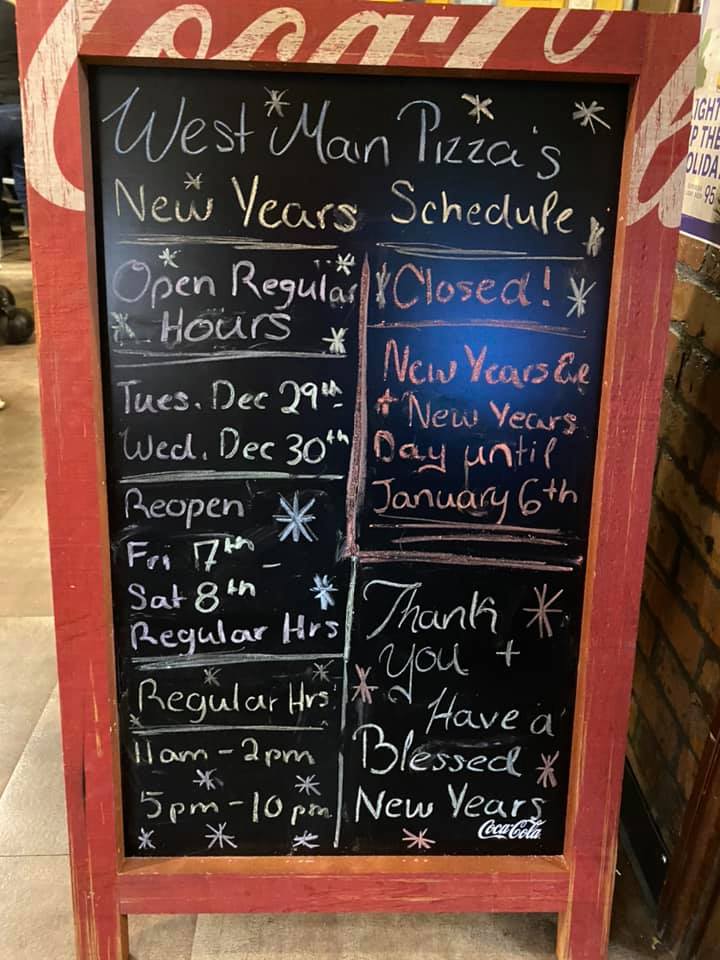 Coca-Cola
West Main Pizza's
New Years Schedule
Open Regular
Hours
Tues. Dec 29th
Wed. Dec 30th
Reopen
Fri 7th -
Sat 8th
Regular Hrs
Regular Hrs
11am - 2pm
5pm - 10pm
Closed!
New Years Eve
+ New Years
Day until
January 6th
Thank
you +
Have a
Blessed
New Years
Coca-Cola
IGHT
P THE
OLIDA
95